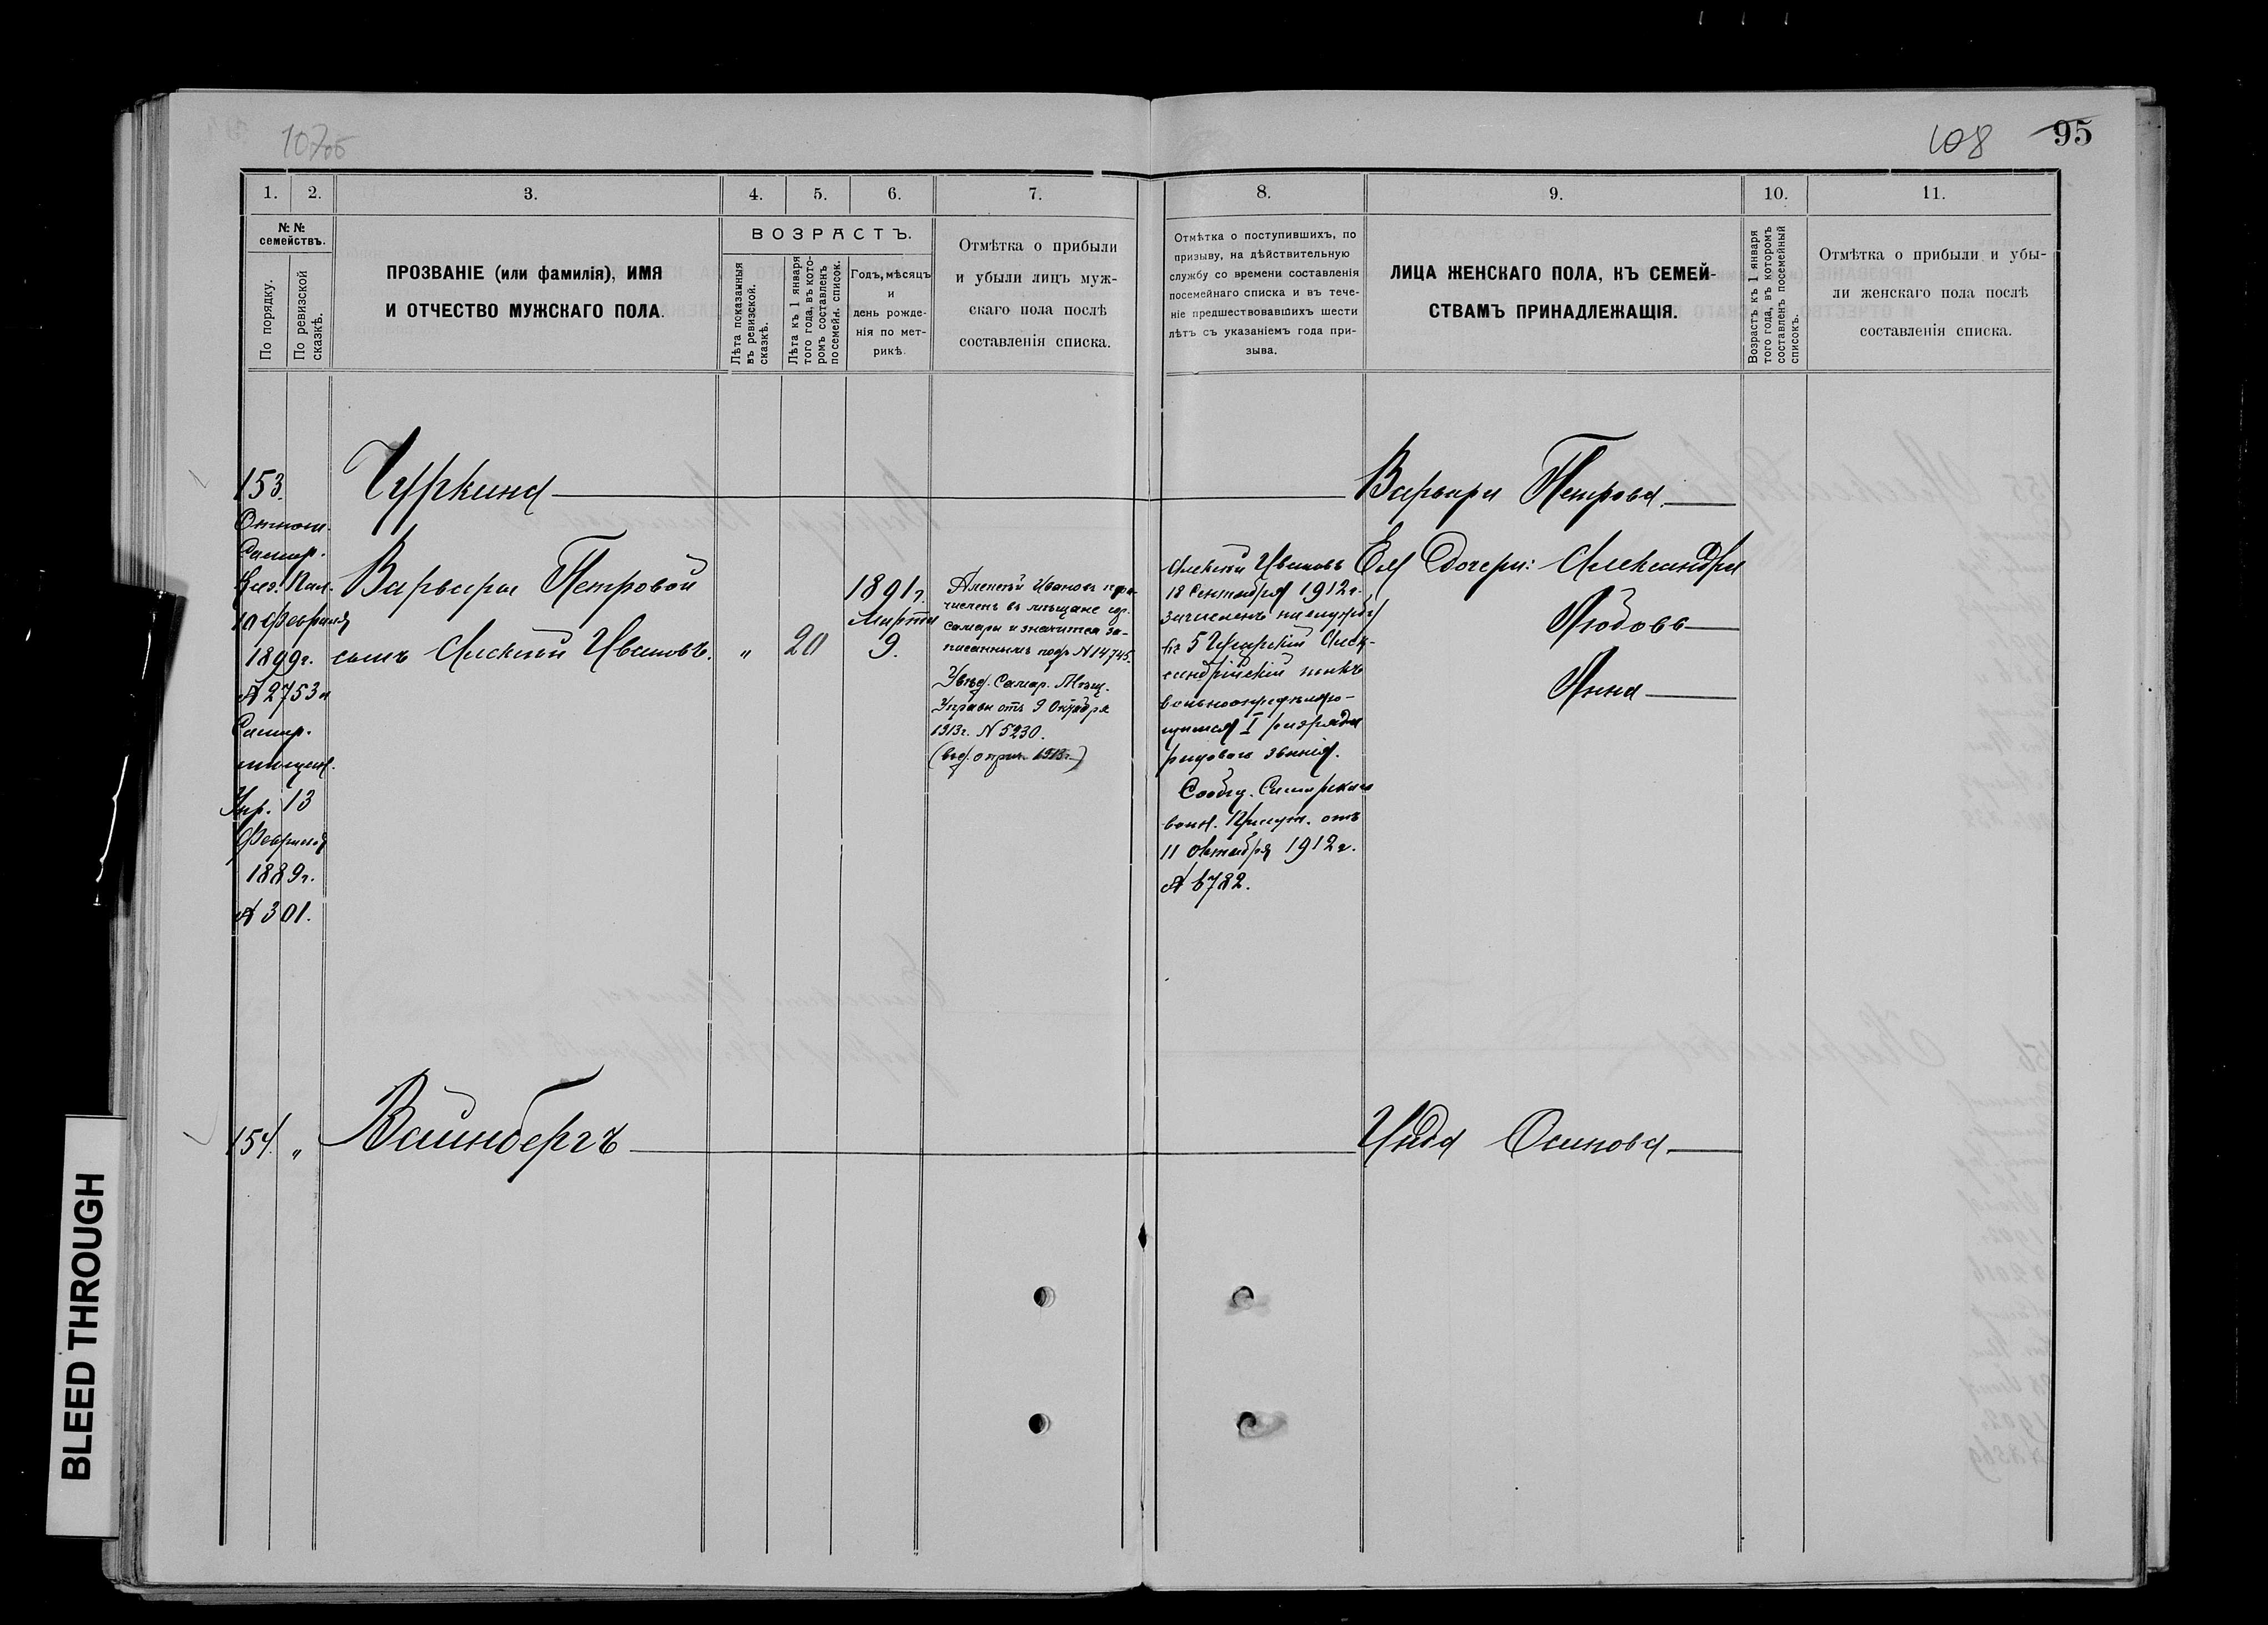 107об
108 95
1. 2. 3. 4. 5. 6. 7. 8. 9. 10. 11.
№ №
семействъ.
По порядку.
По ревизской
сказкѣ.
ПРОЗВАНІЕ (или фамилія), ИМЯ
И ОТЧЕСТВО МУЖСКАГО ПОЛА.
ВОЗРАСТЪ.
Лѣта показанныя
въ ревизской.
сказкѣ.
Лѣта къ 1 января
того года, въ кото-
ромъ составленъ
посемейн. список.
Годъ, мѣсяцъ
и
день рожде-
нія по мет-
рикѣ.
Отмѣтка о прибыли
и убыли лицъ муж-
скаго пола послѣ
составленія списка.
Отмѣтка о поступившихъ, по
призыву, на дѣйствительную
службу со времени составленія
посемейнаго списка и въ тече-
ніе предшествовавшихъ шести
лѣтъ съ указаніемъ года при-
зыва.
ЛИЦА ЖЕНСКАГО ПОЛА, КЪ СЕМЕЙ-
СТВАМЪ ПРИНАДЛЕЖАЩІЯ.
Возрастъ къ 1 января
того года, въ которомъ
составленъ посемейный
списокъ.
Отмѣтка о прибыли и убы-
ли женскаго пола послѣ
составленія списка.
153.
Отнош.
Самар.
Каз. Пал.
10 Февраля
1899г.
№ 2753 и
Самар.
мѣщан.
Упр. 13
Февраля
1889г.
№ 301.
Чуркина
Варвары Петровой
сынъ Алексѣй Ивановъ. „ 20
1891г.
Марта
9.
Алексѣй Ивановъ пере-
численъ въ мѣщане гор.
Самары и значится за-
писаннымъ подъ № 14745.
Увѣд. Самар. Мѣщ.
Управы отъ 9 Октября
1913г. № 5230.
Алексѣй Ивановъ
18 Сентября 1912г.
зачисленъ на службу
въ 5 Гусарскій Алек-
сандрійскій полкъ
вольноопредѣляю-
щимся I разряда
рядового званія.
Сообщ. Самарскаго
воин. Присут. отъ
11 октября 1912г.
№ 6782.
Варвара Петрова
Ея дочери: Александра
Любовь
Анна
154. „ Вайнбергъ
Осипова
BLEED THROUGH